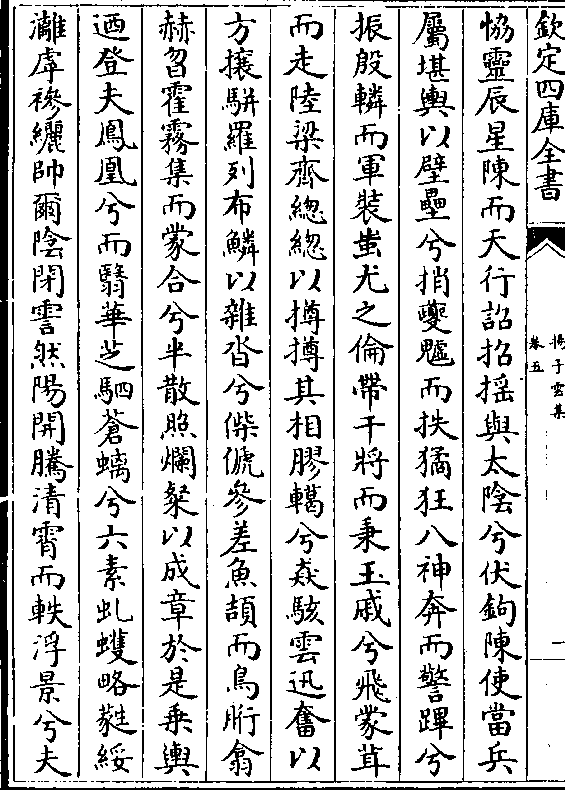 欽定四庫全書
揚子雲集
卷五
一
恊靈辰星陳而天行詔招揺與太陰兮伏鉤陳使當兵
屬堪輿以壁壘兮捎夔魖而抶獝狂八神奔而警蹕兮
振殷轔而軍裝蚩尤之倫帶干將而秉玉戚兮飛蒙茸
而走陸梁齊總總以撙撙其相膠轕兮猋駭雲迅奮以
方攘駢羅列布鱗以雜沓兮傑傂參差魚頡而鳥䀪翕
赫曶霍霧集而蒙合兮半散照爛粲以成章於是乗輿
迺登夫鳳凰兮而翳華芝駟蒼螭兮六素虬蠖略蕤綏
灕虖襂纚帥爾陰閉霅然陽開騰清霄而軼浮景兮夫